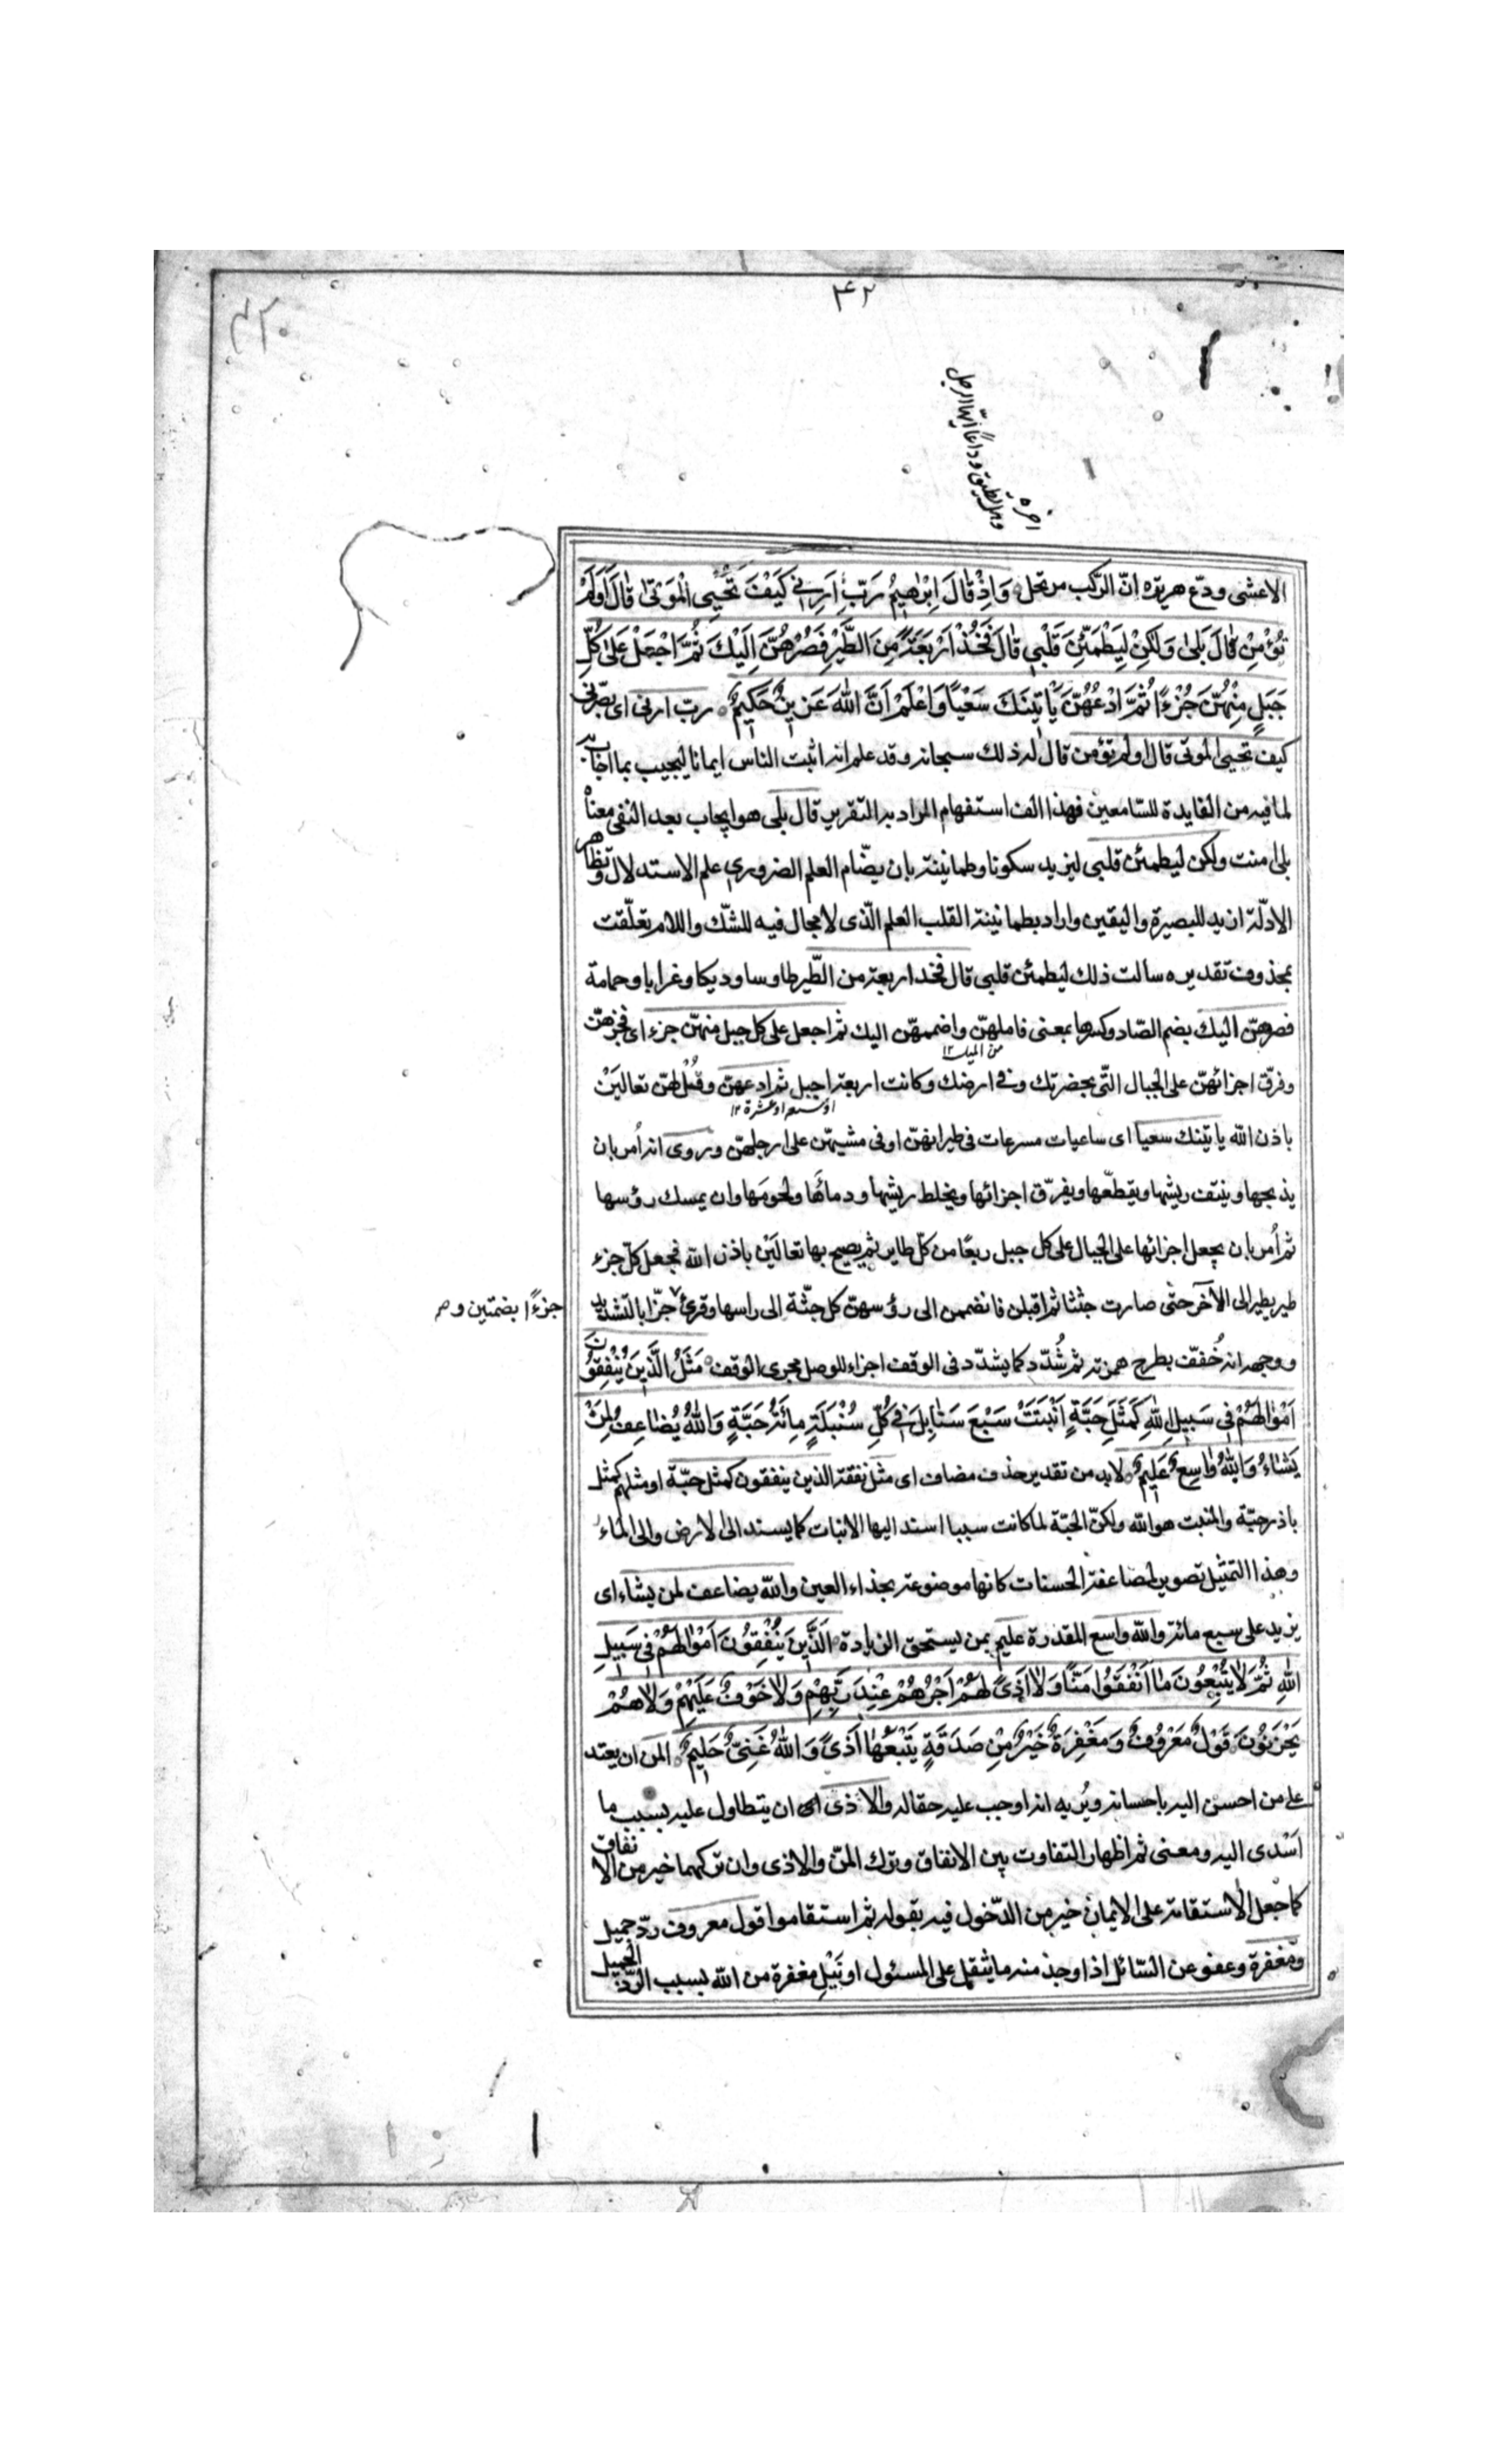 ٤٢
٤٢٠
اخره
وهل تطيق وداعًا ايّها الرجل
الاعشى ودّع هريرة انّ الركب مرتحل وَاِذْ قَالَ اِبْرٰهِيمُ رَبِّ اَرِنِي كَيْفَ تُحْيِي الْمَوْتٰى قَالَ اَوَلَمْ
تُؤْمِنْ قَالَ بَلٰى وَلٰكِنْ لِيَطْمَئِنَّ قَلْبِي قَالَ فَخُذْ اَرْبَعَةً مِنَ الطَّيْرِ فَصُرْهُنَّ اِلَيْكَ ثُمَّ اجْعَلْ عَلٰى كُلِّ
جَبَلٍ مِنْهُنَّ جُزْءًا ثُمَّ ادْعُهُنَّ يَأْتِينَكَ سَعْيًا وَاعْلَمْ اَنَّ اللّٰهَ عَزِيزٌ حَكِيمٌ رب ارنى اى بصّرنى
كيف تحيى الموتى قال اولم تؤمن قال له ذلك سبحانه وقد علم انه اثبت الناس ايمانا ليجيب بما اجاب به
لما فيه من الفايدة للسّامعين فهذا الف استفهام المراد به التقرير قال بلى هو ايجاب بعد النفى معناه
بلى امنت ولكن ليطمئن قلبى ليزيد سكونا وطمانينة بان يضّام العلم الضرورى علم الاستدلال وتظاهر
الادلّة ازيد للبصيرة واليقين واراد بطمانينة القلب العلم الّذى لا مجال فيه للشّك واللام تعلّقت
بمحذوف تقديره سالت ذلك ليطمئن قلبى قال فخذ اربعة من الطّير طاوسا وديكا وغرابا وحمامة
فصرهنّ اليك بضم الصّاد وكسرها بمعنى فاملهنّ واضممهنّ اليك ثم اجعل على كل جبل منهنّ جزء اى فجزهنّ
من الميل ١٢
وفرّق اجزائهنّ على الجبال الّتى بحضرتك وفى ارضك وكانت اربعة اجبل ثم ادعهنّ وقُل لهنّ تعالَيْن
او سبعه او عشرة ١٢
باذن الله ياتينك سعيا اى ساعيات مسرعات فى طيرانهنّ او فى مشيهنّ على ارجلهنّ وروى انه اُمر بان
يذبحها وينتف ريشها ويقطّعها ويفرّق اجزائها ويخلط ريشها ودمائها ولحومها وان يمسك رؤسها
ثم اُمر بان يجعل اجزائها على الجبال على كل جبل ربعًا من كلّ طاير ثم يصيح بها تعالَيْن باذن الله فجعل كلّ جزء
طير يطير الى الآخر حتّى صارت جثثا ثم اقبلن فانضممن الى رؤسهنّ كل جثّة الى راسها وقرئ جزّا بالتشديد
جزءًا بضمتين و
ووجهه انه خُفّف بطرح همزته ثم شُدّد كما يشدّد فى الوقف اجراء للوصل مجرى الوقف مَثَلُ الَّذِينَ يُنْفِقُونَ
اَمْوَالَهُمْ فِي سَبِيلِ اللّٰهِ كَمَثَلِ حَبَّةٍ اَنْبَتَتْ سَبْعَ سَنَابِلَ فِي كُلِّ سُنْبُلَةٍ مِائَةُ حَبَّةٍ وَاللّٰهُ يُضَاعِفُ لِمَنْ
يَشَاءُ وَاللّٰهُ وَاسِعٌ عَلِيمٌ لابد من تقدير حذف مضاف اى مثل نفقة الذين ينفقون كمثل حبّة او مثلهم كمثل
باذر حبّة والمنبت هو الله ولكنّ الحبّة لما كانت سببا اسند اليها الانبات كما يسند الى الارض والى الماء
وهذا التمثيل تصوير لمضاعفة الحسنات كانها موضوعة بحذاء العين والله يضاعف لمن يشاء اى
يزيد على سبع مائة والله واسع المقدرة عليم بمن يستحق الزيادة اَلَّذِينَ يُنْفِقُونَ اَمْوَالَهُمْ فِي سَبِيلِ
اللّٰهِ ثُمَّ لَا يُتْبِعُونَ مَا اَنْفَقُوا مَنًّا وَلَا اَذًى لَهُمْ اَجْرُهُمْ عِنْدَ رَبِّهِمْ وَلَا خَوْفٌ عَلَيْهِمْ وَلَا هُمْ
يَحْزَنُونَ قَوْلٌ مَعْرُوفٌ وَمَغْفِرَةٌ خَيْرٌ مِنْ صَدَقَةٍ يَتْبَعُهَا اَذًى وَاللّٰهُ غَنِيٌّ حَلِيمٌ المن ان يعتد
على من احسن اليه باحسانه ويُريه انه اوجب عليه حقا له والاذى ان يتطاول عليه بسبب ما
اَسْدى اليه ومعنى ثم اظهار التفاوت بين الانفاق وترك المنّ والاذى وان تركهما خير من الانفاق
كما جعل الاستقامة على الايمان خير من الدّخول فيه بقوله ثم استقاموا قول معروف ردّ جميل
ومغفرة وعفو عن السّائل اذا وجد منه ما يثقل على المسئول او نَيْلِ مغفرة من الله بسبب الردّ الجميل